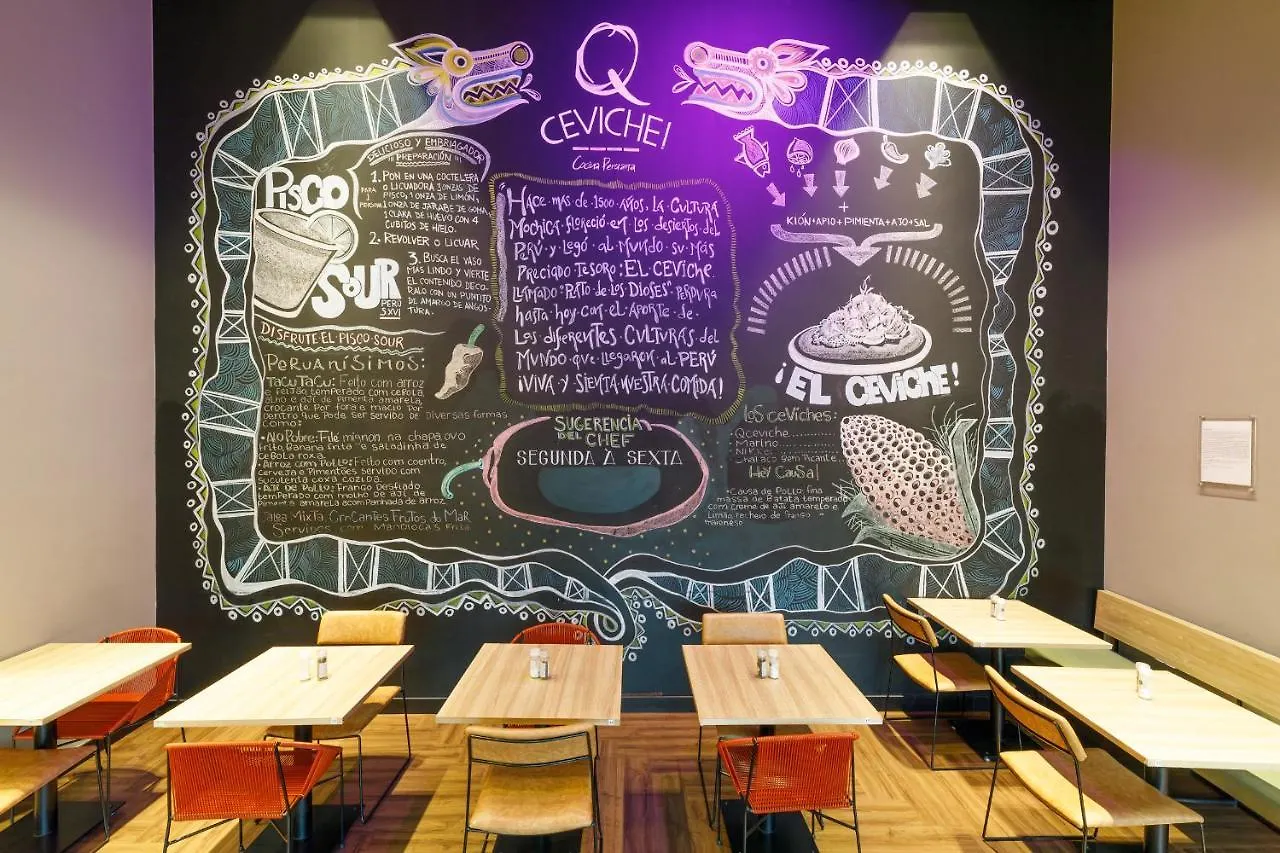 Q
CEVICHE!
Cocina Peruana
DELICIOSO Y EMBRIAGADOR
PREPARACIÓN
PISCO
SOUR
PERÚ
S.XVI
PARA
1
PERSONA
1. PON EN UNA COCTELERA
O LICUADORA 3 ONZAS DE
PISCO, 1 ONZA DE LIMÓN,
1 ONZA DE JARABE DE GOMA,
1 CLARA DE HUEVO CON 4
CUBITOS DE HIELO.
2. REVOLVER O LICUAR
3. BUSCA EL VASO
MAS LINDO Y VIERTE
EL CONTENIDO DECO-
RALO CON UN PUNTITO
DE AMARGO DE ANGOS-
TURA.
DISFRUTE·EL·PISCO·SOUR
PERUANÍSIMOS:
TACU TACU: Feito com arroz
e Feijão temperado com cebola,
alho e ají de pimenta amarela,
crocante Por fora e macio por
dentro que Pode Ser servido de diversas formas
como:
·A lo Pobre: Filé mignon na chapa, ovo
frito, Banana frita e saladinha de
cebola roxa.
·Arroz com Pollo: Feito com coentro,
cerveja e Pimentões servido com
suculenta coxa cozida.
·Ají de Pollo: Frango Desfiado
temperado com molho de ají de
Pimenta amarela acompanhada de arroz
Jalea Mixta: Crocantes Frutos do Mar
Servidos com Mandiocas Frita
¡HACE·MAS·DE·1500·AÑOS, LA·CULTURA
MOCHICA·FLORECIÓ·EN·LOS·DESIERTOS·DEL
PERÚ·Y·LEGÓ·AL·MUNDO·SU·MÁS
PRECIADO TESORO: EL·CEVICHE.
LLAMADO "PLATO·DE·LOS·DIOSES" PERDURA
HASTA·HOY·CON·EL·APORTE·DE·
LOS·DIFERENTES·CULTURAS·DEL
MUNDO·QUE·LLEGARON·AL·PERÚ
¡VIVA·Y·SIENTA·NUESTRA·COMIDA!
SUGERENCIA
DEL CHEF
SEGUNDA A SEXTA
+
KIÓN+APIO+PIMIENTA+AJO+SAL
¡EL CEVICHE!
Los ceviches:
Qceviche
Marino
Chalaco Bem Picante
Hey Causa!
·Causa de Pollo: fina
massa de Batata temperada
com creme de ají amarelo e
Limão, recheio de frango e
maionese